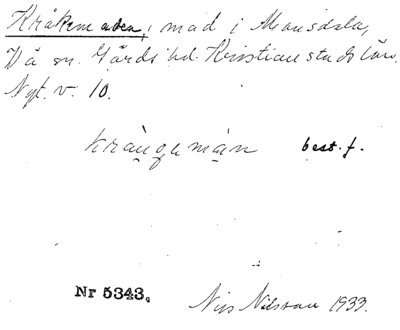 Kråkemaden, mad i Monsdala,
Vä sn. Gärds hd. Kristianstads län.
Nyt. v. 10.
best. f.
Nr 5343.
Nils Nilsson 1933.